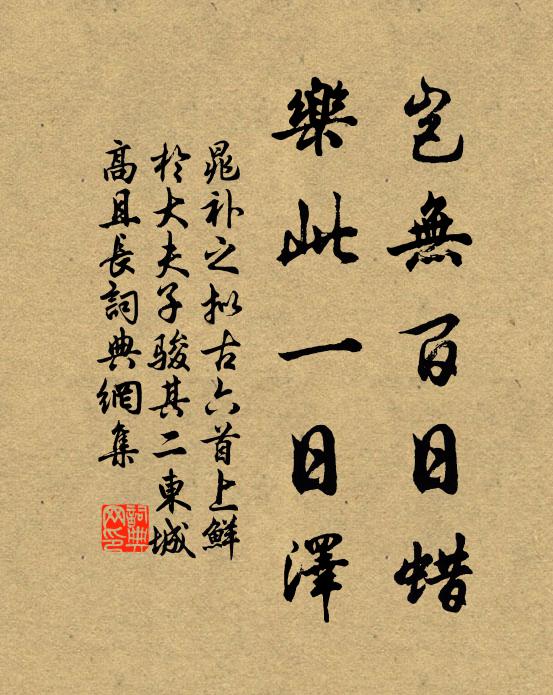 豈無百日蜡
樂此一日澤
晁補之拟古六首上鮮
於大夫子駿其二東城
高且長詞典網集
詞典网印